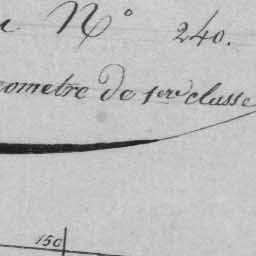 N° 240.
eometre de 1ere classe
150